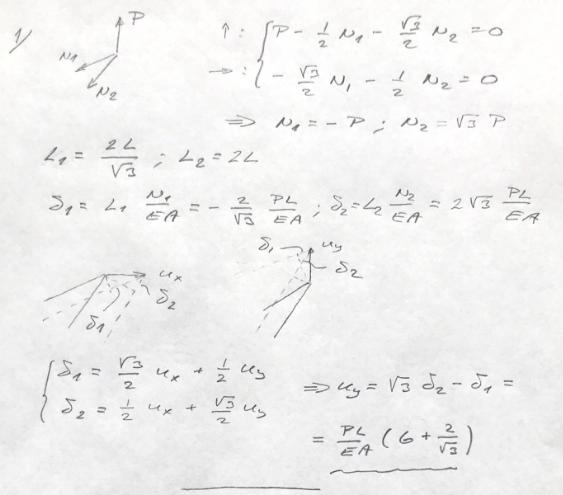 1/ P
N1
N2
↑: { P - 1/2 N1 - √3/2 N2 = 0
→: { - √3/2 N1 - 1/2 N2 = 0
⇒ N1 = - P ; N2 = √3 P
L1 = 2L/√3 ; L2 = 2L
δ1 = L1 N1/EA = - 2/√3 PL/EA ; δ2 = L2 N2/EA = 2√3 PL/EA
ux δ2 δ1
δ1 uy δ2
{ δ1 = √3/2 ux + 1/2 uy
δ2 = 1/2 ux + √3/2 uy
⇒ uy = √3 δ2 - δ1 =
= PL/EA (6 + 2/√3)